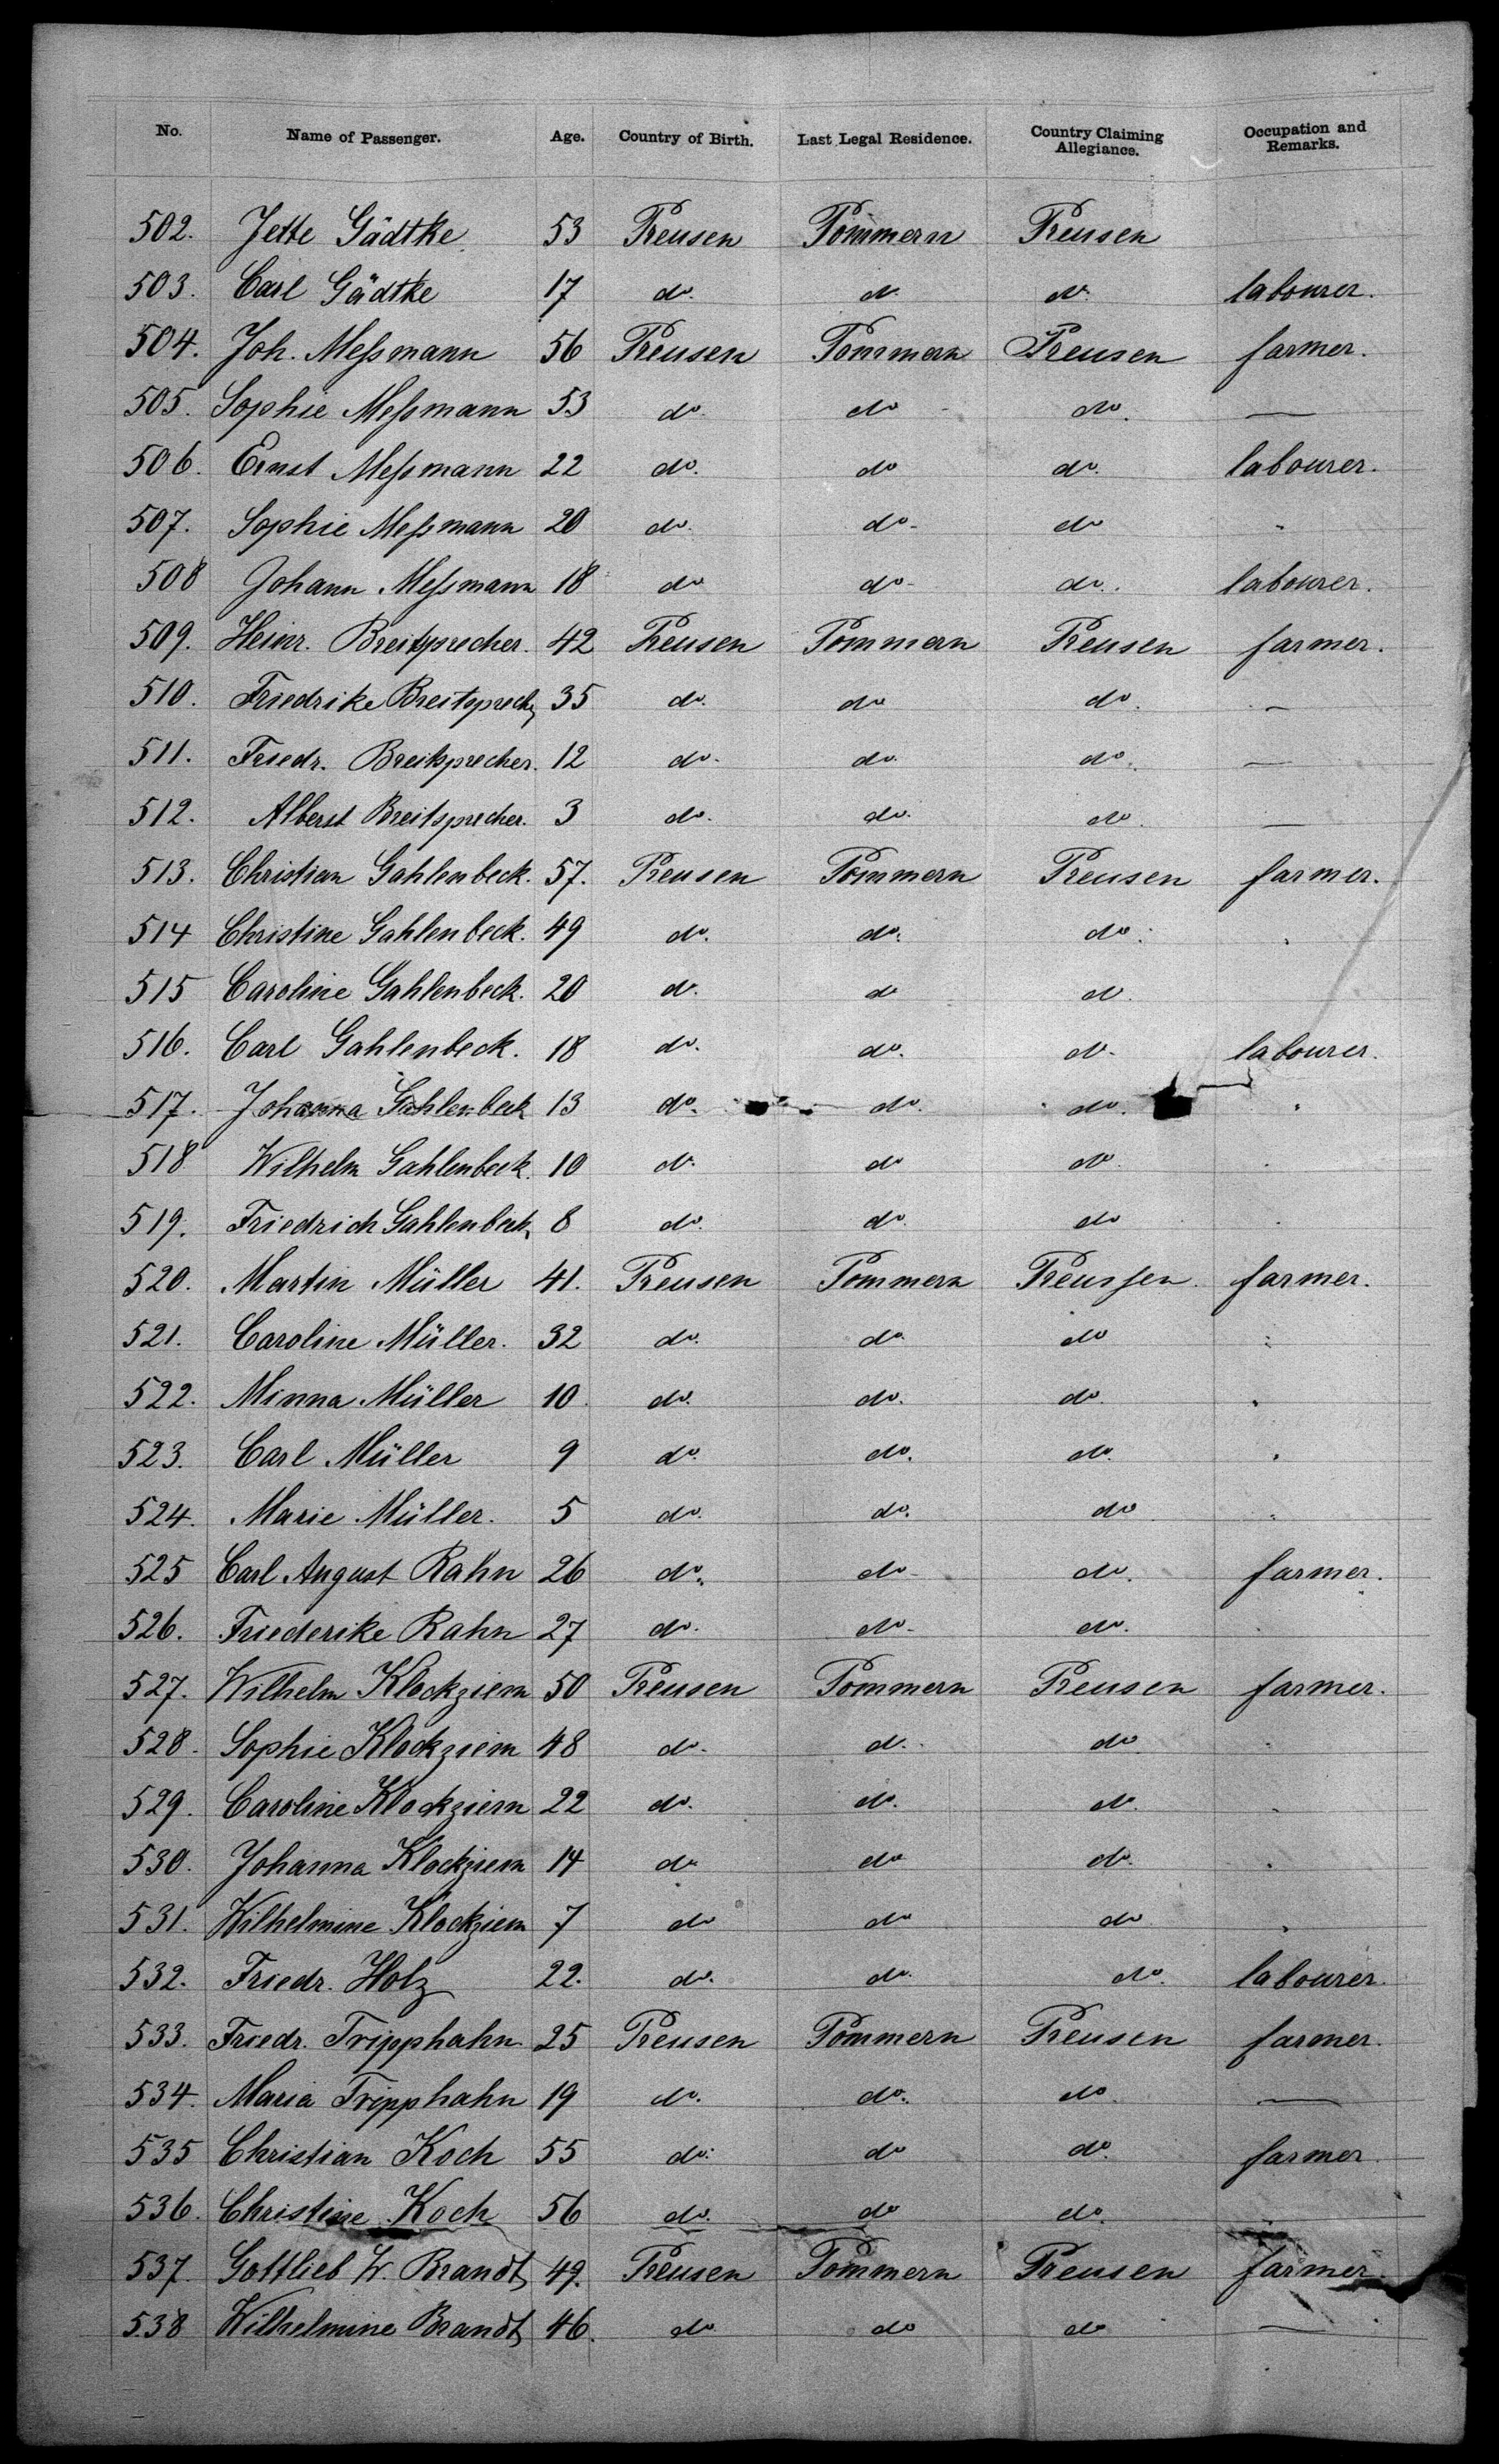 No. Name of Passenger. Age. Country of Birth. Last Legal Residence. Country Claiming Allegiance. Occupation and Remarks.
502. Jette Gädtke 53 Preusen Pommern Preusen
503. Carl Gädtke 17 do. do. do. labourer.
504. Joh. Meßmann 56 Preusen Pommern Preusen farmer.
505. Sophie Meßmann 53 do. do do. —
506. Ernst Meßmann 22 do. do do. labourer.
507. Sophie Meßmann 20 do. do- do "
508 Johann Meßmann 18 do do- do. labourer.
509. Heinr. Breitsprecher. 42 Preusen Pommern Preusen farmer.
510. Friedrike Breitsprecher 35 do. do do. —
511. Friedr. Breitsprecher. 12 do. do. do. —
512. Albert Breitsprecher. 3 do. do. do. —
513. Christian Gahlenbeck. 57. Preusen Pommern Preusen farmer.
514 Christine Gahlenbeck. 49 do. do. do.
515 Caroline Gahlenbeck. 20 do. do do.
516. Carl Gahlenbeck. 18 do. do. do. labourer.
517. Johanna Gahlenbeck 13 do. do. do. "
518 Wilhelm Gahlenbeck. 10 do. do do.
519. Friedrich Gahlenbeck 8 do. do. do
520. Martin Müller 41. Preusen Pommern Preussen farmer.
521. Caroline Müller. 32 do. do. do "
522. Minna Müller 10 do. do. do. "
523. Carl Müller 9 do. do. do. "
524. Marie Müller. 5 do. do. do "
525 Carl August Rahn 26 do. do- do. farmer.
526. Friederike Rahn 27 do. do- do.
527. Wilhelm Klockziem 50 Preusen Pommern Preusen farmer.
528. Sophie Klockziem 48 do. do. do
529. Caroline Klockziem 22 do. do. do.
530. Johanna Klockziem 14 do do do. "
531. Wilhelmine Klockziem 7 do do do "
532. Friedr. Holz 22. do. do. do. labourer.
533. Friedr. Tripphahn 25 Preusen Pommern Preusen farmer.
534. Maria Tripphahn 19 do. do. do —
535 Christian Koch 55 do. do do. farmer
536. Christine Koch 56 do. do do.
537. Gottlieb W. Brandt 49. Preusen Pommern Preusen farmer.
538 Wilhelmine Brandt 46. do do do —